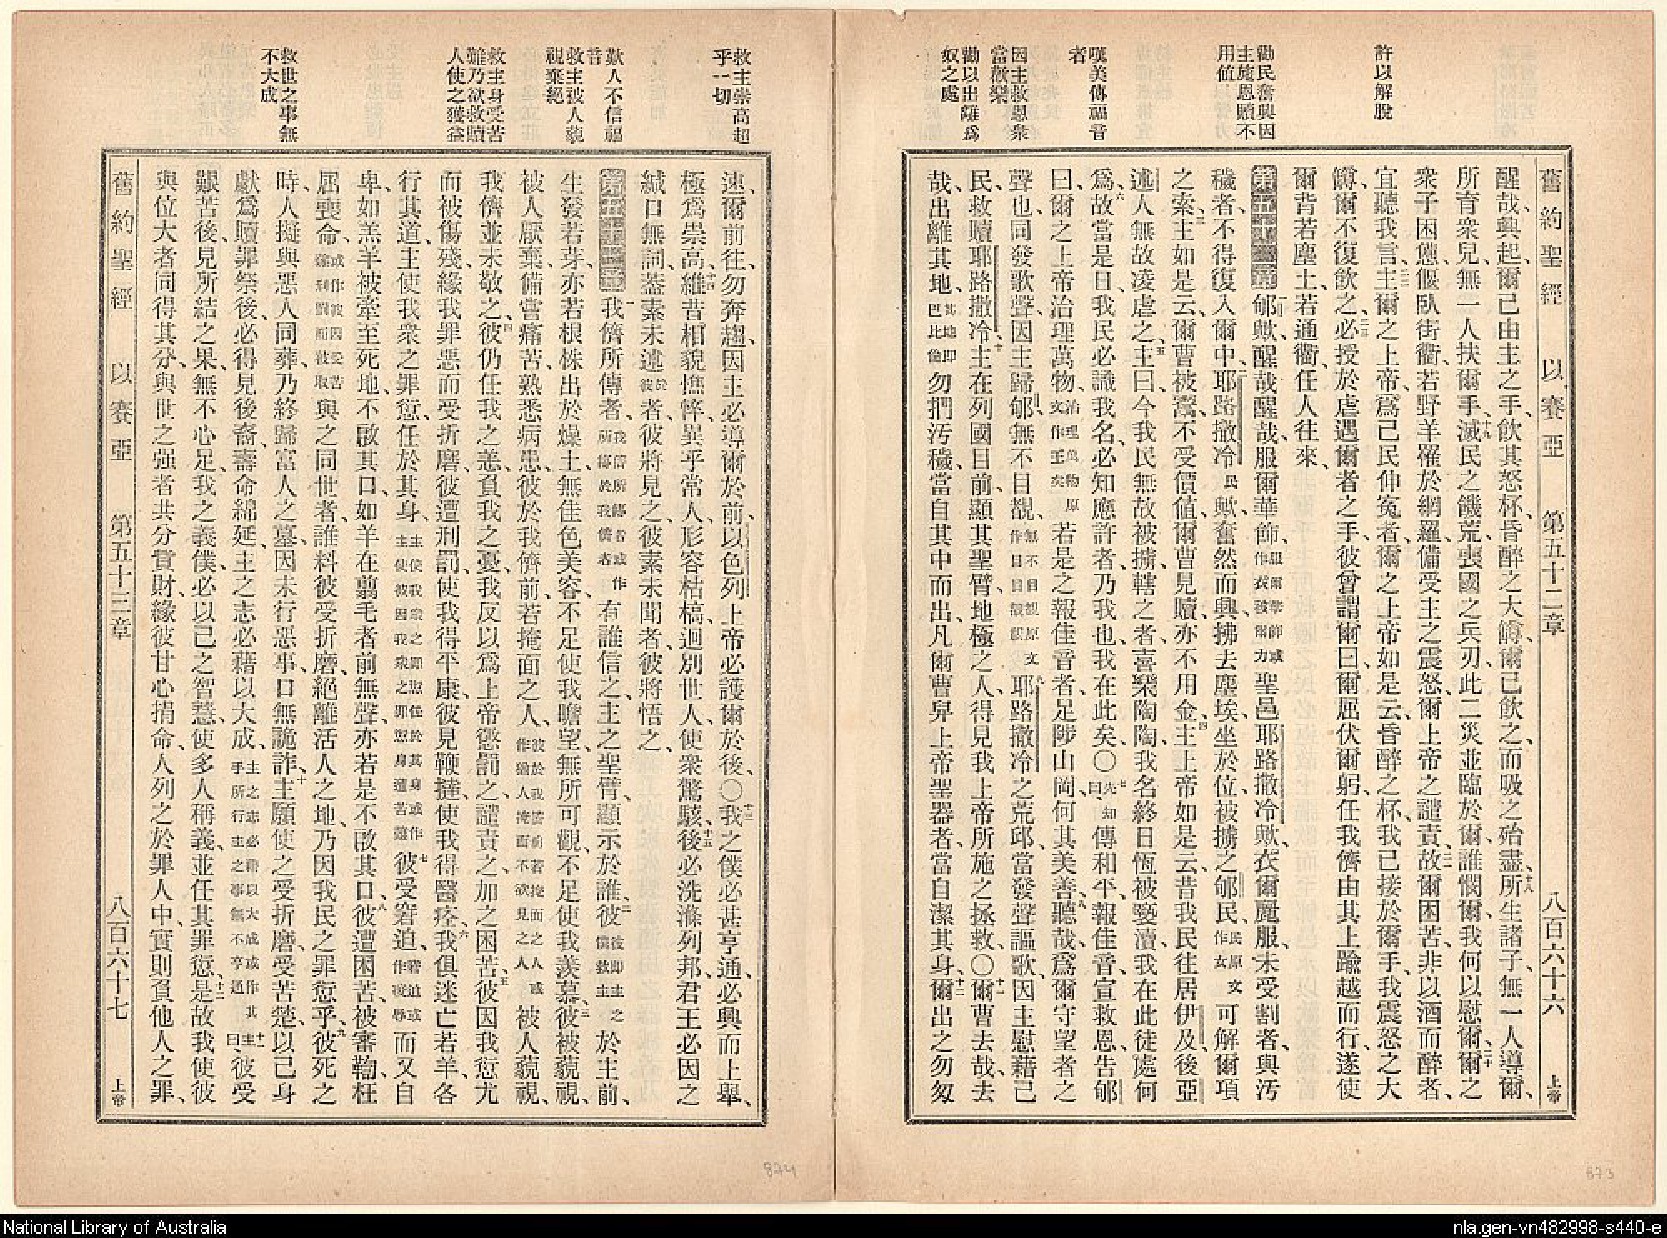 許以解脫
勸民奮興因
主施恩顧不
用值
嘆美傳福音
者
因主救恩眾
當歡樂
勸以出離爲
奴之處
舊約聖經 以賽亞 第五十二章 八百六十六 上帝
醒哉興起、爾已由主之手、飲其怒杯、昏醉之大罇、爾已飲之而吸之殆盡、十八所生諸子、無一人導爾、
所育眾兒、無一人扶爾手、十九滅民之饑荒、喪國之兵刃、此二災並臨於爾、誰憫爾、我何以慰爾、二十爾之
眾子困憊、偃臥街衢、若野羊罹於網羅、備受主之震怒、爾上帝之譴責、二一故爾困苦、非以酒而醉者、
宜聽我言、二二主爾之上帝、爲己民伸冤者、爾之上帝、如是云、昏醉之杯、我已接於爾手、我震怒之大
罇、爾不復飲之、二三必授於虐遇爾者之手、彼曾謂爾曰、爾屈伏爾躬、任我儕由其上踰越而行、遂使
爾背若塵土、若通衢、任人往來、
第五十二章 一郇歟、醒哉醒哉、服爾華飾、聖邑耶路撒冷歟、衣爾麗服、未受割者、與汚
穢者、不得復入爾中、二耶路撒冷民歟、奮然而興、拂去塵埃、坐於位、被擄之郇民、可解爾項
之索、三主如是云、爾曹被鬻、不受價值、爾曹見贖、亦不用金、四主上帝如是云、昔我民往居伊及、後亞
述人無故凌虐之、五主曰、今我民無故被擄、轄之者喜樂陶陶、我名終日恆被褻瀆、我在此徒處何
爲、六故當是日、我民必識我名、必知應許者乃我也、我在此矣、〇七先知曰傳和平、報佳音、宣救恩、告郇
曰、爾之上帝治理萬物、若是之報佳音者、足陟山岡、何其美善、八聽哉、爲爾守望者之
聲也、同發歌聲、因主歸郇、無不目覩、九耶路撒冷之荒邱、當發聲謳歌、因主慰藉己
民、救贖耶路撒冷、十主在列國目前、顯其聖臂、地極之人、得見我上帝所施之拯救、〇十一爾曹去哉、去
哉、出離其地、當地即巴比倫勿捫汚穢、當自其中而出、凡爾曹舁上帝聖器者、當自潔其身、十二爾出之勿匆
救主崇高超
乎一切
歎人不信福
音
救主被人藐
視棄絕
救主身受苦
難乃欲救贖
人使之獲益
救世之事無
不大成
遽、爾前往、勿奔趨、因主必導爾於前、以色列上帝必護爾於後、〇十三我之僕、必甚亨通、必興而上舉、
極爲崇高、十四維昔相貌憔悴、異乎常人、形容枯槁、迥別世人、使眾驚駭、十五後必洗滌列邦、君王必因之
緘口無詞、蓋素未述於彼者、彼將見之、彼素未聞者、彼將悟之、
第五十三章 一我儕所傳者、有誰信之、主之聖臂、顯示於誰、二彼於主前、
生發若芽、亦若根株出於燥土、無佳色美容、不足使我瞻望、無所可觀、不足使我羨慕、三彼被藐視、
被人厭棄、備嘗痛苦、熟悉病患、彼於我儕前、若掩面之人、被人藐視、
我儕並未敬之、四彼仍任我之恙、負我之憂、我反以爲上帝懲罰之、譴責之、加之困苦、五彼因我愆尤
而被傷殘、緣我罪惡而受折磨、彼遭刑罰、使我得平康、彼見鞭撻、使我得醫痊、六我俱迷亡若羊、各
行其道、主使我眾之罪愆、任於其身、七彼受窘迫、而又自
卑、如羔羊被牽至死地、不啟其口、如羊在翦毛者前無聲、亦若是不啟其口、八彼遭困苦、被審鞫、枉
屈喪命、與之同世者、誰料彼受折磨、絕離活人之地、乃因我民之罪愆乎、九彼死之
時、人擬與惡人同葬、乃終歸富人之墓、因未行惡事、口無詭詐、十主願使之受折磨、受苦楚、以己身
獻爲贖罪祭、後必得見後裔、壽命綿延、主之志必藉以大成、十一主曰彼受
艱苦、後見所結之果、無不心足、我之義僕、必以己之智慧、使多人稱義、並任其罪愆、十二是故我使彼
與位大者同得其分、與世之强者共分貨財、緣彼甘心捐命、人列之於罪人中、實則負他人之罪、
舊約聖經 以賽亞 第五十三章 八百六十七 上帝
874
873
National Library of Australia
nla.gen-vn482998-s440-e